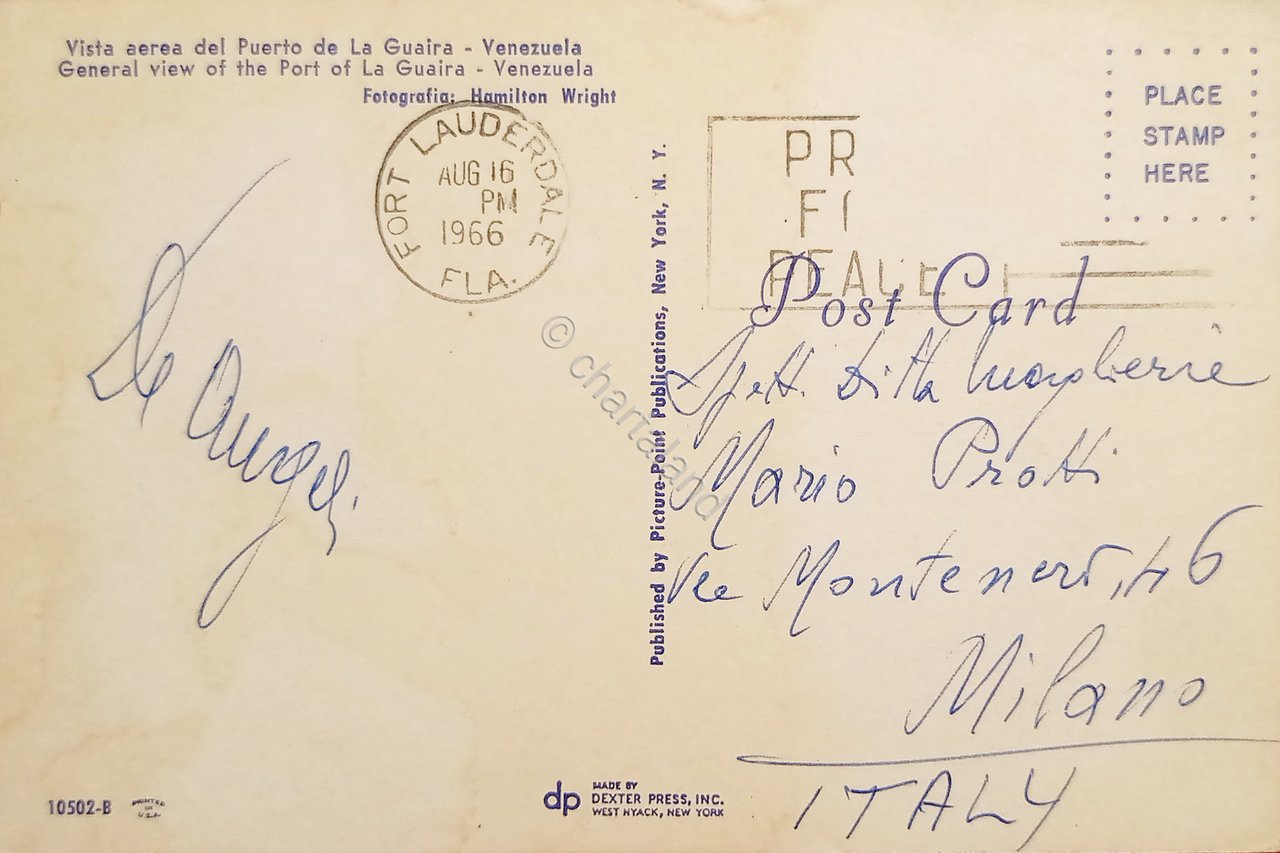 Vista aerea del Puerto de La Guaira - Venezuela
General view of the Port of La Guaira - Venezuela
Fotografia: Hamilton Wright
FORT LAUDERDALE
AUG 16
PM
1966
FLA.
PR
FI
PEACE
PLACE
STAMP
HERE
Post Card
De Angeli
Published by Picture-Point Publications, New York, N. Y.
© chartaland
Spett. Ditta Maglierie
Mario Protti
Via Montenero, 46
Milano
ITALY
10502-B
PRINTED
IN
U.S.A.
dp
MADE BY
DEXTER PRESS, INC.
WEST NYACK, NEW YORK